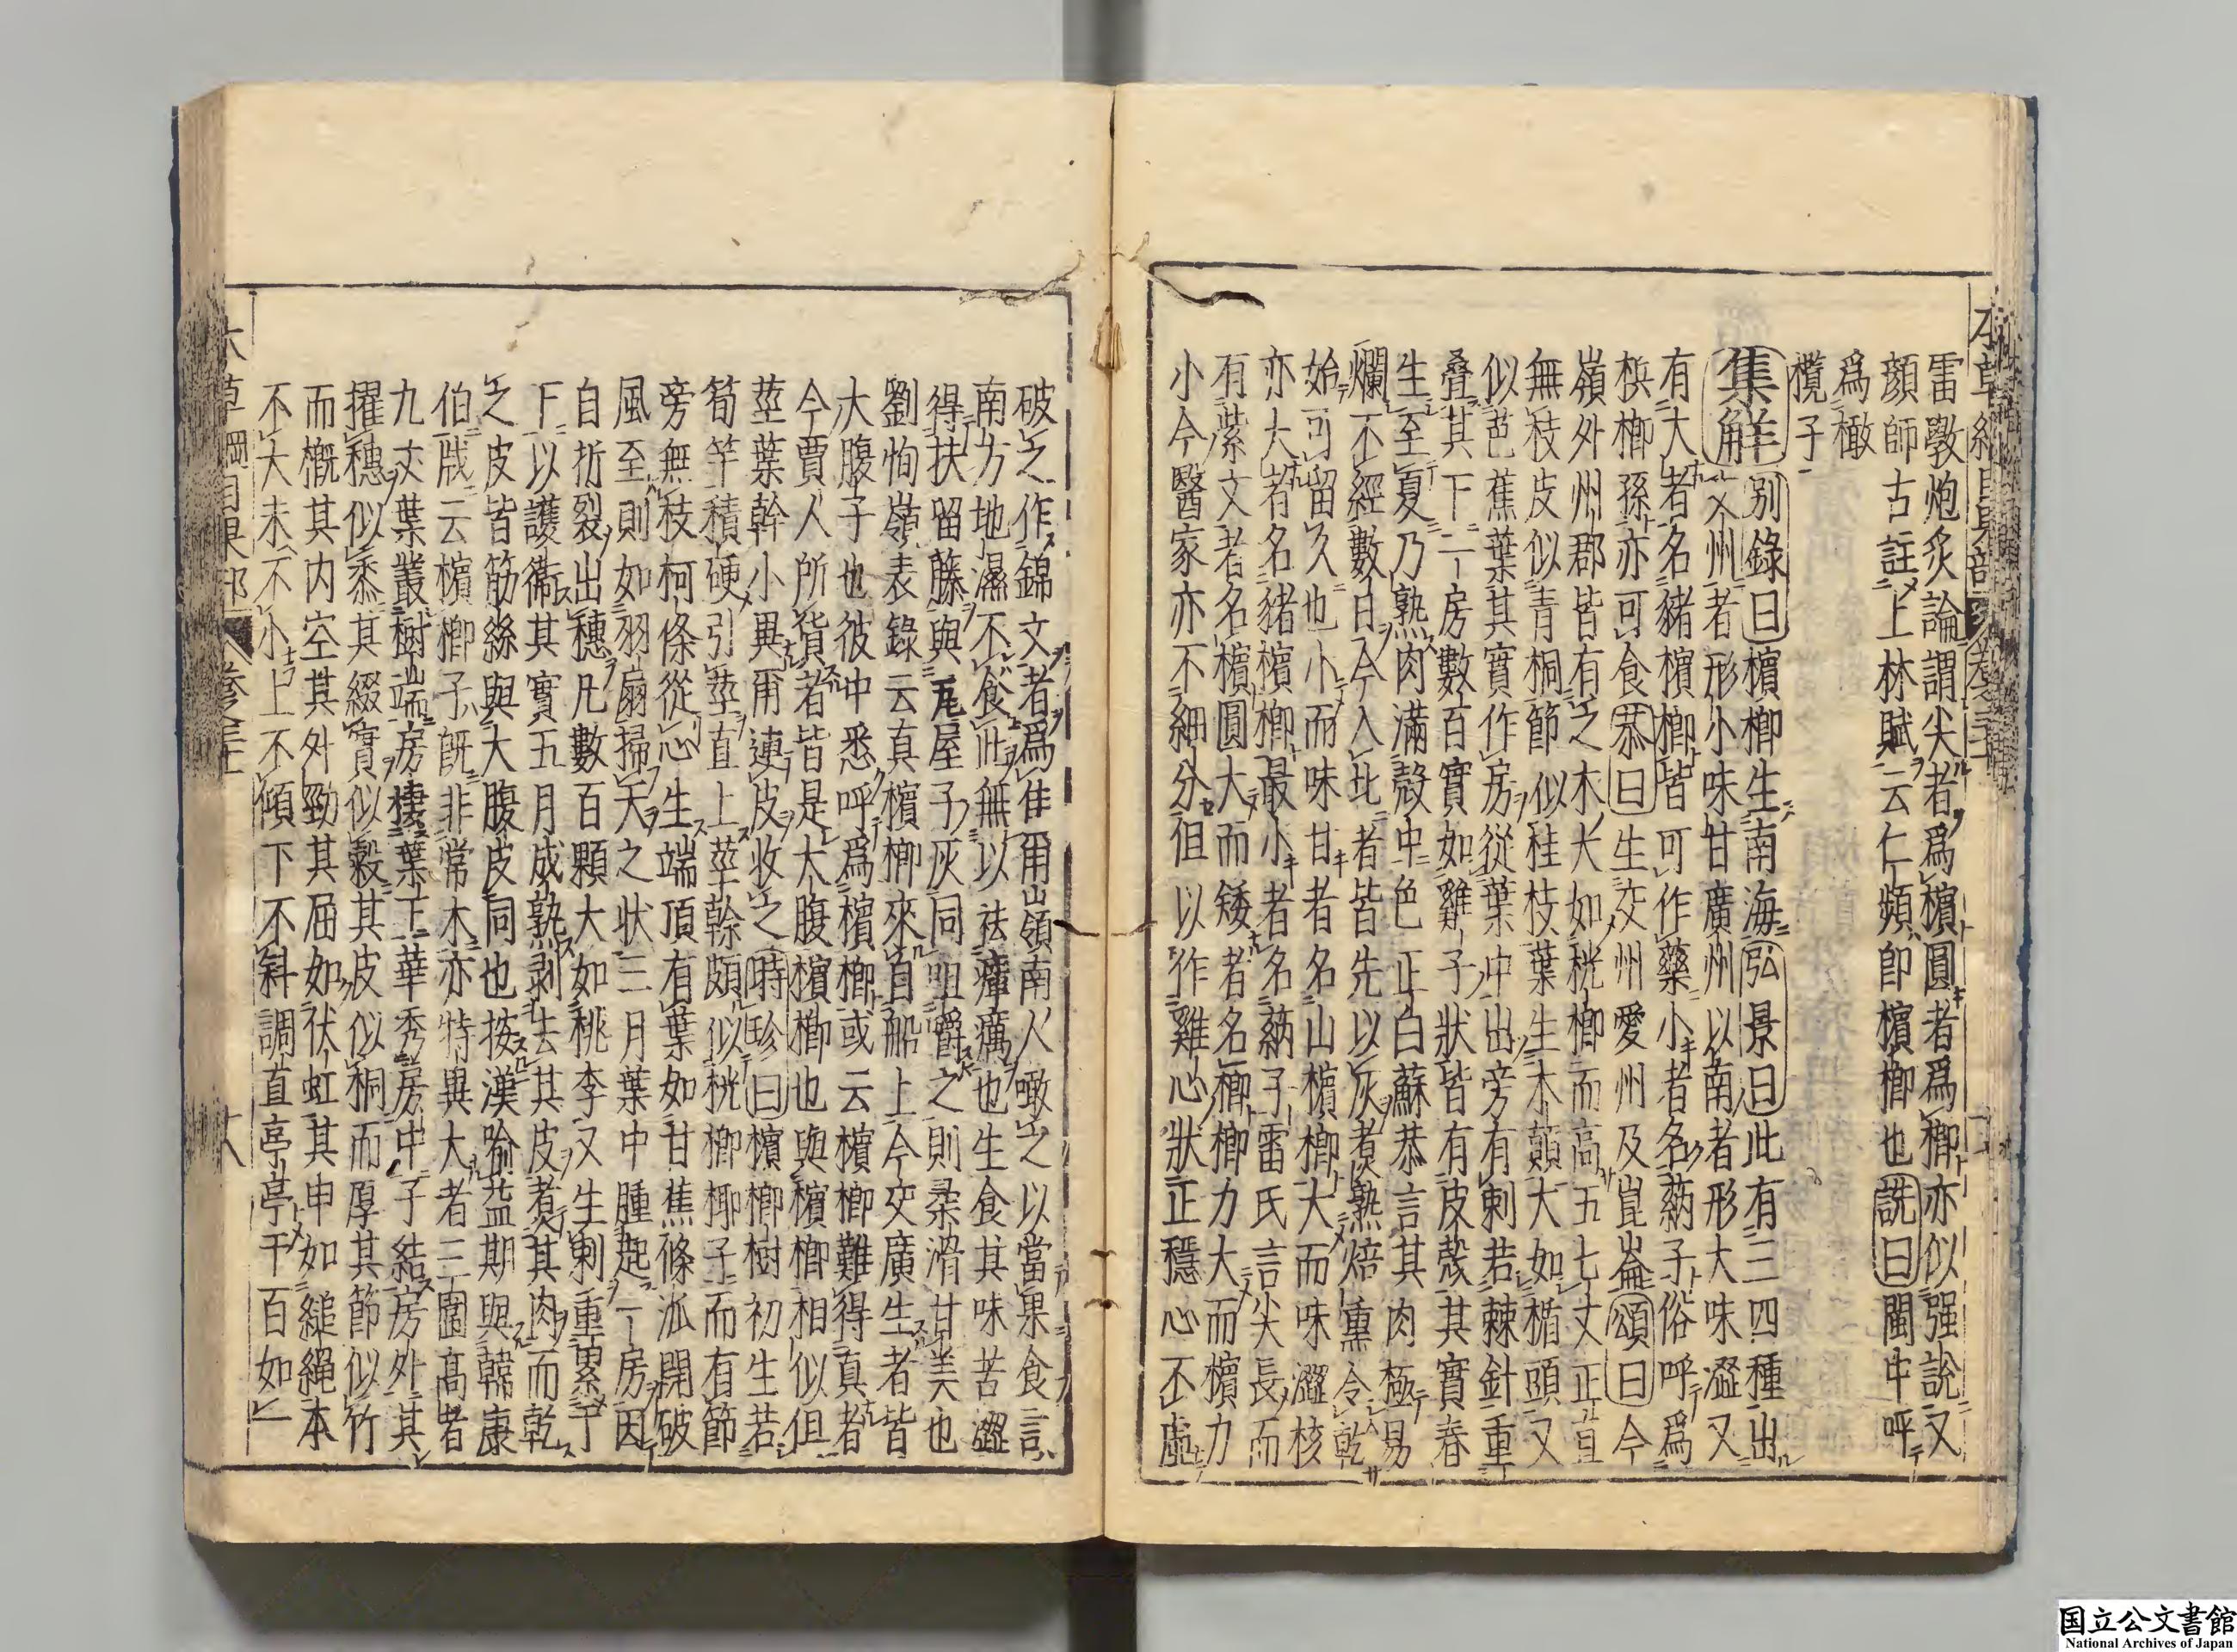 雷斅炮炙論謂尖者爲檳圓者爲榔亦似强說又
顔師古註上林賦云仁頻卽檳榔也詵曰閩中呼
爲橄
欖子
集觧别錄曰檳榔生南海弘景曰此有三四種出
交州者形小味甘廣州以南者形大味澀又
有大者名豬檳榔皆可作藥小者名蒳子俗呼爲
梹榔孫亦可食恭曰生交州愛州及崑崙頌曰今
嶺外州郡皆有之木大如桄榔而高五七丈正直
無枝皮似青桐節似桂枝葉生木顛大如楯頭又
似芭蕉葉其實作房從葉中出旁有刺若棘針重
叠其下一房數百實如雞子狀皆有皮殼其實春
生至夏乃熟肉滿殼中色正白蘇恭言其肉極易
爛不經數日今入北者皆先以灰煑熟焙熏令乾
始可留久也小而味甘者名山檳榔大而味澀核
亦大者名豬檳榔最小者名蒳子雷氏言尖長而
有紫文者名檳圓大而矮者名榔榔力大而檳力
小今醫家亦不細分但以作雞心狀正穩心不虛
破之作錦文者爲佳爾嶺南人噉之以當果食言
南方地濕不食此無以祛瘴癘也生食其味苦澀
得扶留藤與瓦屋子灰同咀嚼之則柔滑甘美也
劉恂嶺表錄云真檳榔來自舶上今交廣生者皆
大腹子也彼中悉呼爲檳榔或云檳榔難得真者
今賈人所貨者皆是大腹檳榔也與檳榔相似但
莖葉幹小異爾連皮收之時珍曰檳榔樹初生若
筍竿積硬引莖直上莖幹頗似桄榔椰子而有節
旁無枝柯條從心生端頂有葉如甘蕉條派開破
風至則如羽扇掃天之状三月葉中腫起一房因
自拆裂出穗凡數百顆大如桃李又生刺重累于
下以護衛其實五月成熟剥去其皮煑其肉而乾
之皮皆筋絲與大腹皮同也按漢喻益期與韓康
伯牋云檳榔子旣非常木亦特異大者三圍高者
九丈葉叢樹端房棲葉下華秀房中子結房外其
擢穗似黍其綴實似穀其皮似桐而厚其節似竹
而概其内空其外勁其屈如伏虹其申如縋繩本
不大末不小上不傾下不斜調直亭亭千百如一
本草綱目果部 卷三十一 十八
国立公文書館
National Archives of Japan